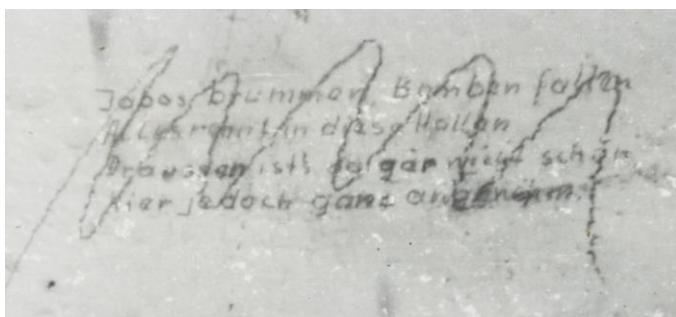 Jabos brummen Bomben fallen
Alles rennt in diese Hallen
Draussen ists da gar nicht schön
Hier jedoch ganz angenehm.